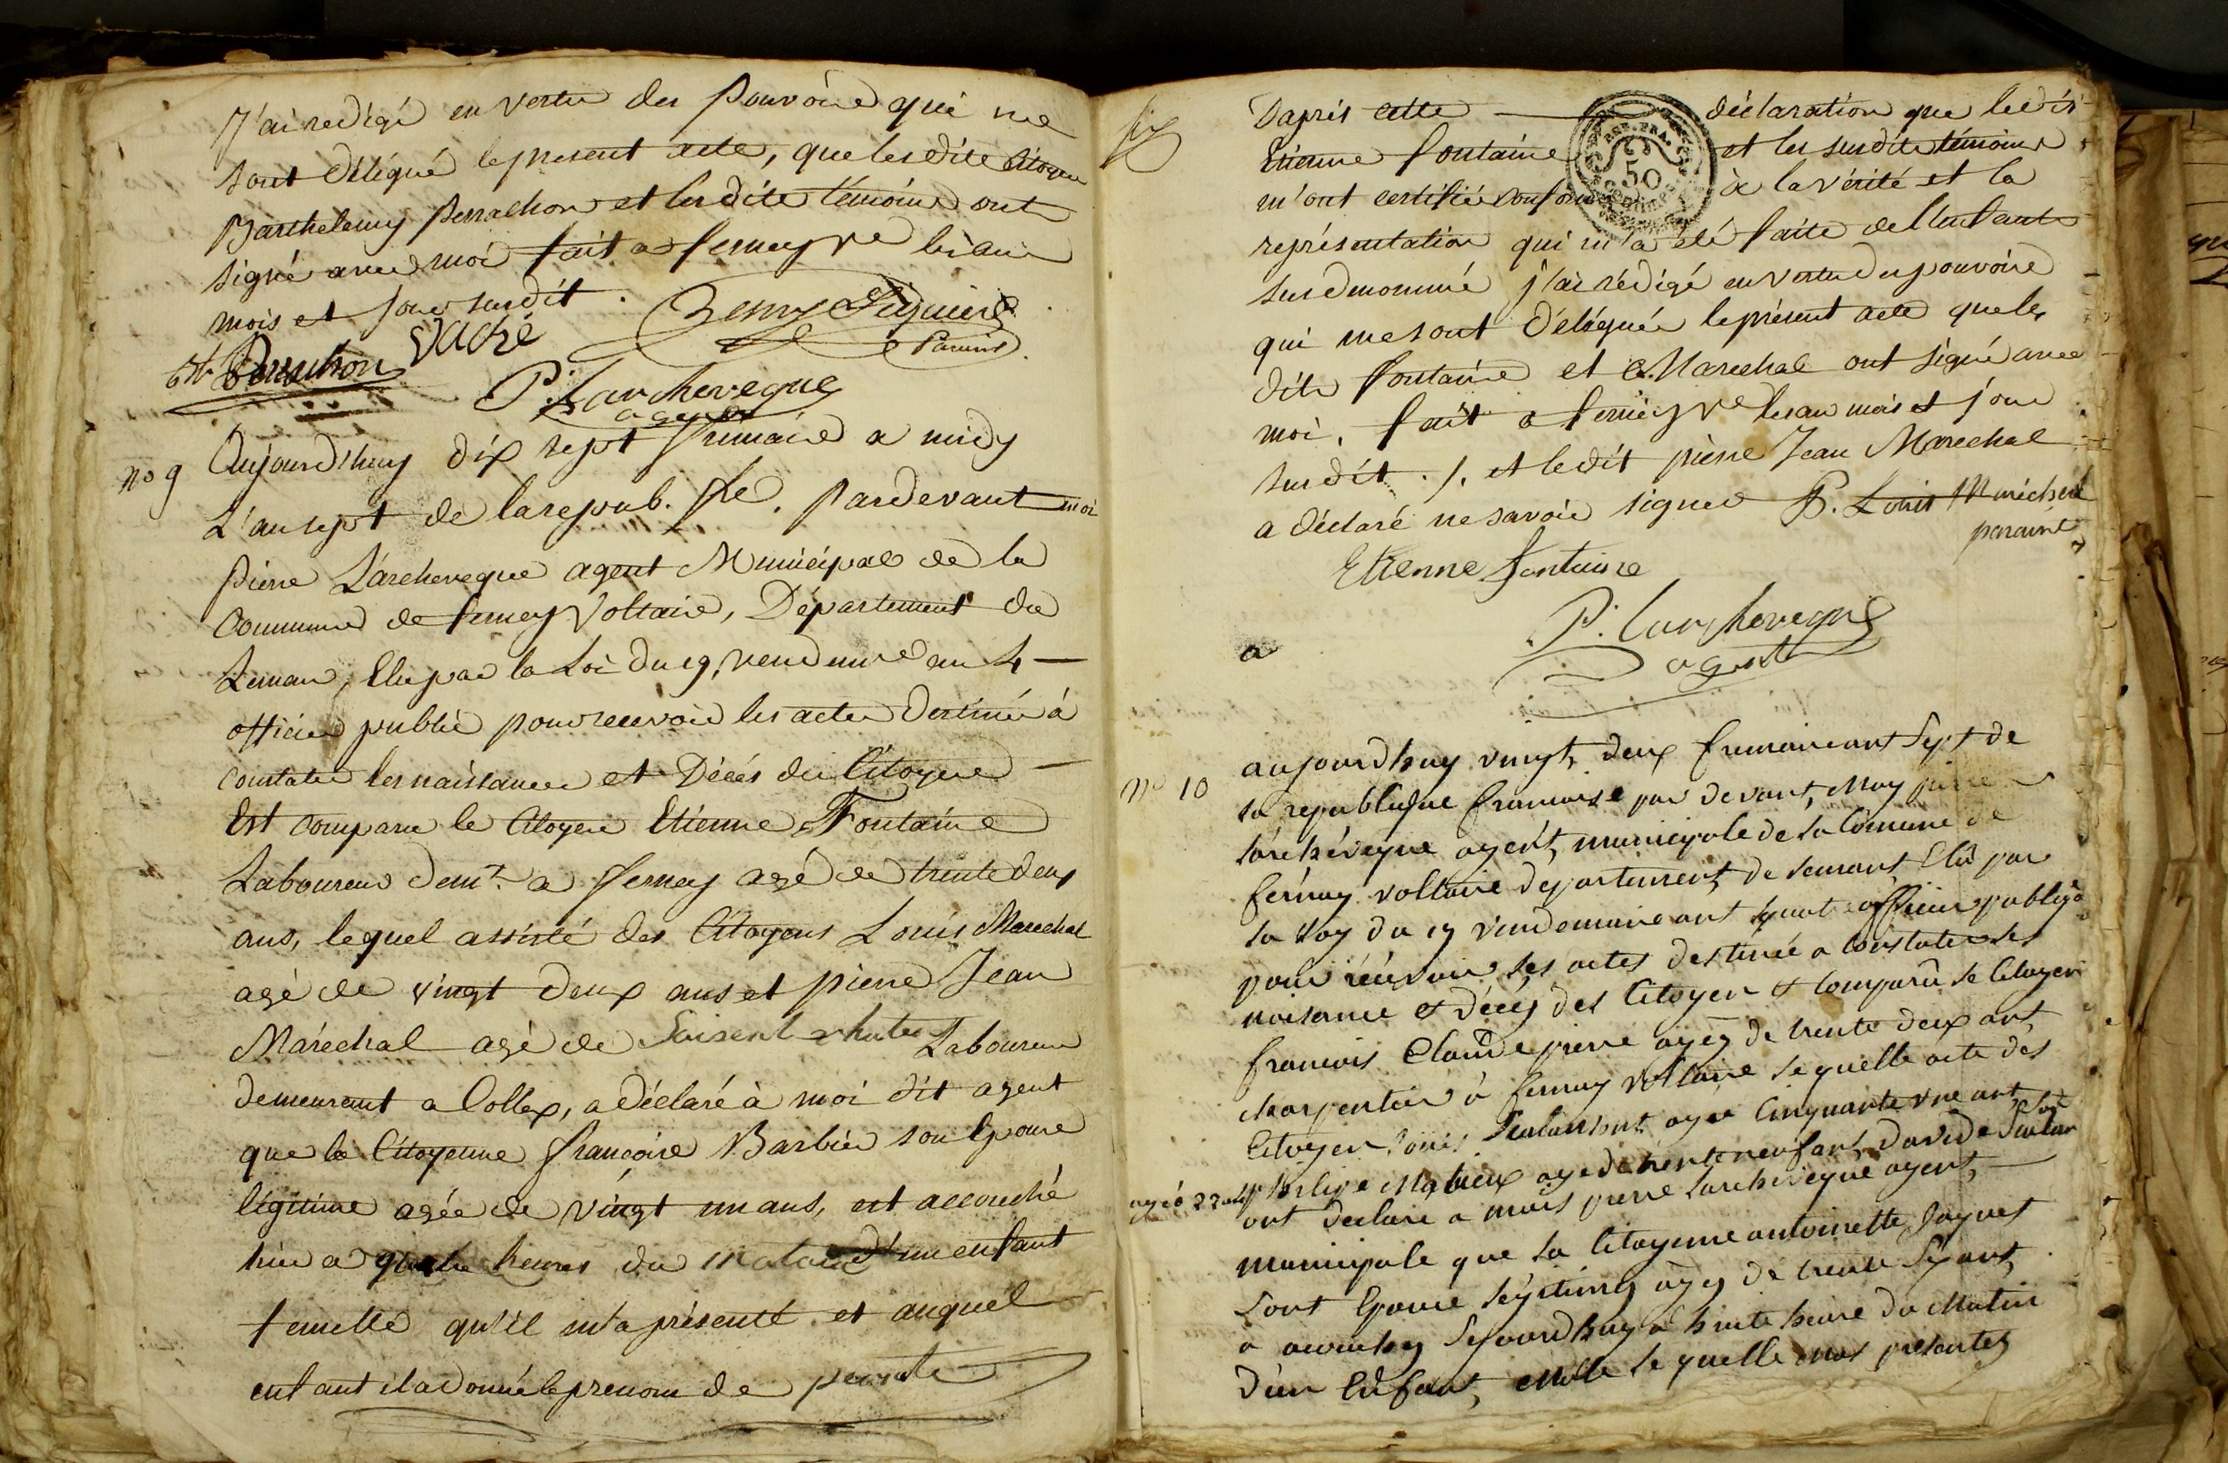 J'ai redigé en vertu des pouvoirs qui me
sont délégué le present acte, que lesdits Citoyen
Barthelemy Perrachon et lesdits témoins ont
signé avec moi fait a ferney Vre les an
mois et jour susdit.
Vaché
Perrachon
Parain
P. Larcheveque
agent
no 9
Aujourd'huy dix sept frimaire a midy
L'an sept de la repub. fse. Pardevant moi
Pierre Larcheveque agent Municipal de la
Commune de ferney Voltaire, Département du
Leman, Elu par la Loi du 19, vendmre an 4 —
officier public pour recevoir les actes destinés à
constater les naissances et Décès des Citoyens —
Est comparu le Citoyen Etienne Fontaine
Laboureur demt. a ferney agé de trente deux
ans, lequel assisté des Citoyens Louis Marechal
agé de vingt deux ans et pierre Jean
Maréchal agé de Laboureur
demeurant a Collex, a déclaré à moi dit agent
que la Citoyenne françoise Barbier son Epouse
légitime agée de vingt un ans, est accouché
hier a quatre heures du matin d'un enfant
femelle qu'il m'a présenté et auquel
enfant il a donné le prenom de pernate
six
D'après cette — déclaration que ledit
Etienne fontaine et les susdits témoins
REP. FRA.
50
m'ont certifié conforme à la vérité et la
représentation qui m'a été faite de l'enfant
susdenommé j'ai rédigé en vertu des pouvoirs
qui me sont délégués le présent acte que les
dits fontaine et Marechal ont signé avec
moi, fait a ferney Vre les an mois et jour
susdit. /. et le dit pierre Jean Marechal
a déclaré ne savoir signer P. Louis Maréchal
parain
Etienne fontaine
P. Larcheveque
agent
a
no 10
aujourdhuy vingt, deux frimaire ant Sept de
la republique francaise par devant, Moy pierre
larchéveque agent, municipale de la Comune de
fernay voltaire departement, de Lemant, Elû par
la Loy du 19 vendemiaire ant quatre officier public
pour recevoir les actes destinée a constater les
naisance et décés des Citoyen et comparu le Citoyen
francois Claude pierre agez de trente deux ant
charpentier à fernay voltaire lequelle acte des
Citoyen Louis agée Cinquante une ant
philipe agé de trente neuf ant, Davide
agéé 22 ant
ont declaré a mois pierre larcheveque agent, —
municipale que la Citoyenne antoinette Jaques
sont Epouse légitime agez de trente Sept ant,
a acouchez Sejourdhuy a huite heure du Matin
d'un Enfant, Malle lequelle mas presentez